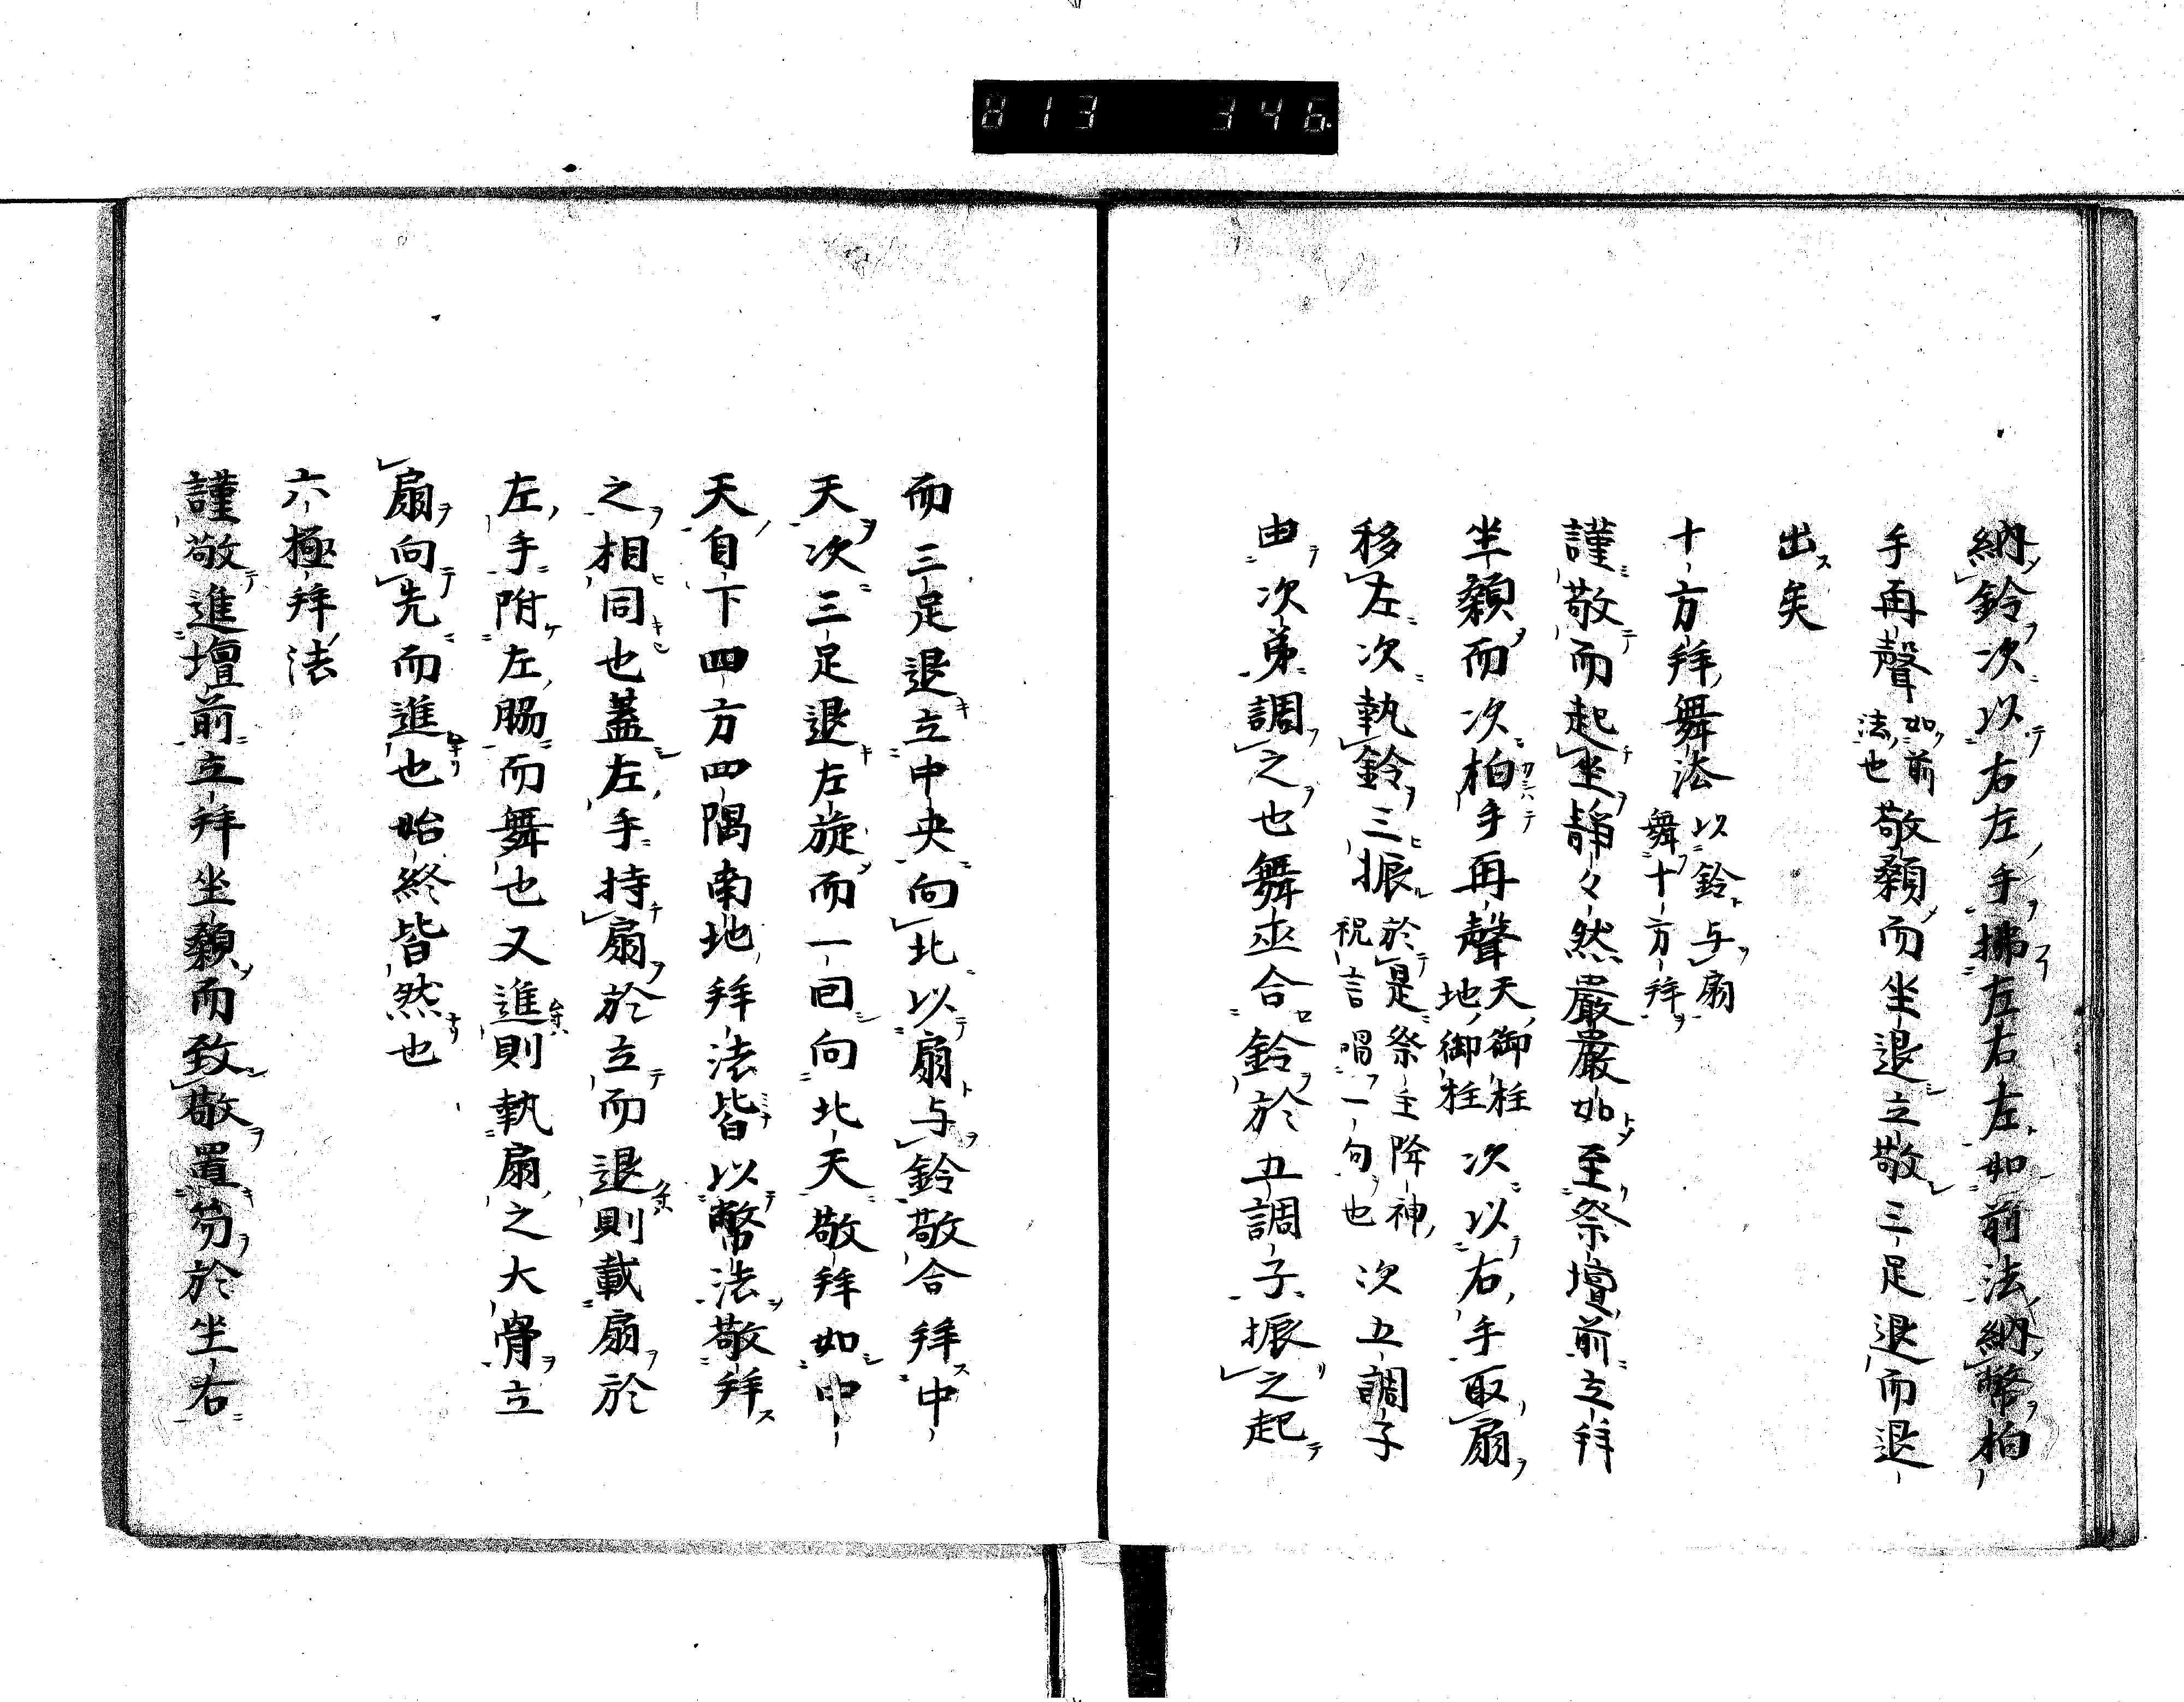 813 346
納鈴次以右左手拂左右左如前法納幣拍
手再聲如前法也敬顙而坐退立敬三足退而退
出矣
十方拜舞法以鈴与扇舞十方拜
謹敬而起坐静々然嚴嚴如至祭壇前立拜
坐顙而次柏手再聲天御柱地御柱次以右手取扇
移左次執鈴三振於是祭主降神祝言唱一句也次五調子
由次第調之也舞巫合鈴於五調子振之起
而三足退立中央向北以扇与鈴敬合拜中
天次三足退左旋而一回向北天敬拜如中
天自下四方四隅南地拜法皆以幣法敬拜
之相同也蓋左手持扇於立而退則載扇於
左手附左脇而舞也又進則執扇之大骨立
扇向先而進也始終皆然也
六極拜法
謹敬進壇前立拜坐顙而致敬置笏於坐右